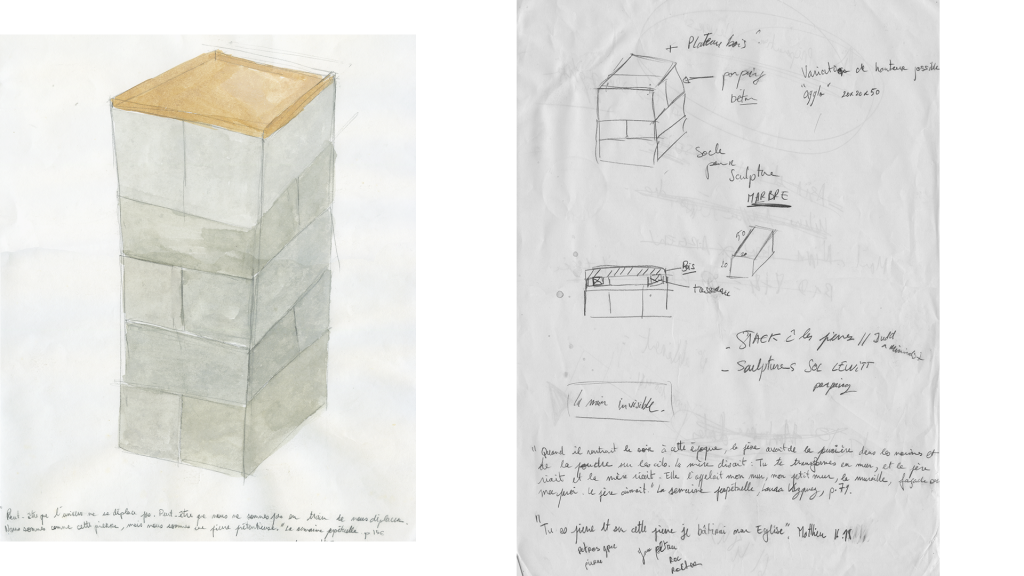 Peut-être que l'univers ne se déplace pas. Peut-être que nous ne sommes pas en train de nous déplacer.
Nous sommes comme cette pierre, mais nous sommes une pierre " La semaine perpétuelle, p.
+ Plateau bois
parpaing
béton
Variation de hauteur possible
"agglo" 20x20x50
Socle
pour
Sculpture
MARBRE
50
20
Bois
tasseau
- STACK les pierres // Judd
- Sculptures SOL LEWITT
parpaing
Le mur invisible.
"Quand il rentrait le soir à cette époque, le père avait de la poussière dans les narines et
de la poudre sur les cils. La mère disait : Tu te transformes en mur, et le père
riait et la mère riait. Elle l'appelait mon mur, mon petit mur, la muraille, façade
Le père aimait." La semaine perpétuelle, Laura Vazquez, p.71.
"Tu es pierre et sur cette pierre je bâtirai mon Eglise", Mathieu 16 18
pierre
roc
rocher